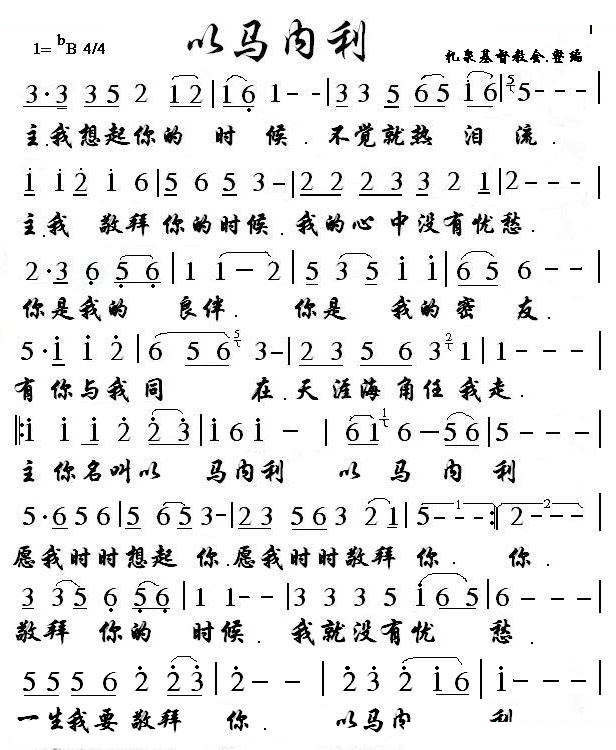 1= ᵇB 4/4 以马内利 札泉基督教会.整编
3·3 3 5 2 1 2 | 1 6 1 - - | 3 3 5 6 5 1 6 | 5 - - - |
主.我想起你的 时 候. 不觉就热 泪 流.
1 1 2 1 6 | 5 6 5 3 - | 2 2 2 3 3 2 2 1 | 2 - - - |
主.我 敬拜 你的时候. 我的心 中没有忧愁.
2·3 6 5 6 | 1 1 - 2 | 5 3 5 1 1 | 6 5 6 - - |
你是我的 良伴. 你是 我的密 友.
5·1 1 2 | 6 5 6 3 - | 2 3 5 6 3 1 | 1 - - - |
有你与我同 在.天涯海角任我走.
‖: 1 1 1 2 2 3 | 1 6 1 - | 6 1 6 - 5 6 | 5 - - - |
主 你名叫以 马内利 以 马 内 利
5·6 5 6 | 5 6 5 3 - | 2 3 5 6 3 2 1 | 5 - 1 - - :‖ 2 - 2 - - |
愿我时时想起 你.愿我时时敬拜 你. 你.
3 3 5 6 5 6 | 1 1 - - | 3 3 3 5 1 6 | 6 - - - |
敬拜 你的 时候. 我就没有忧 愁.
5 5 5 6 2 2 3 | 2 - - | 2 3 2 1 6 | 1 - - - |
一生我要敬拜 你. 以马内 利.